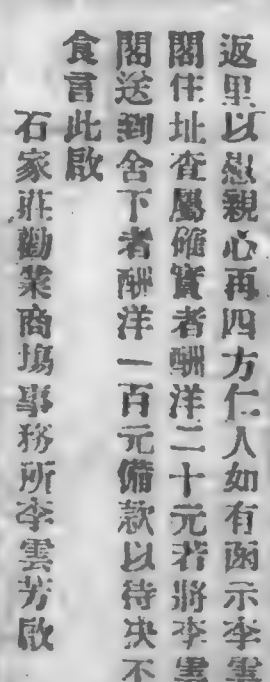 返里以慰親心再四方仁人如有函示李雲
閣住址查屬確實者酬洋二十元若將李雲
閣送到舍下者酬洋一百元備款以待决不
食言此啟
石家莊勸業商塲事務所李雲芳啟